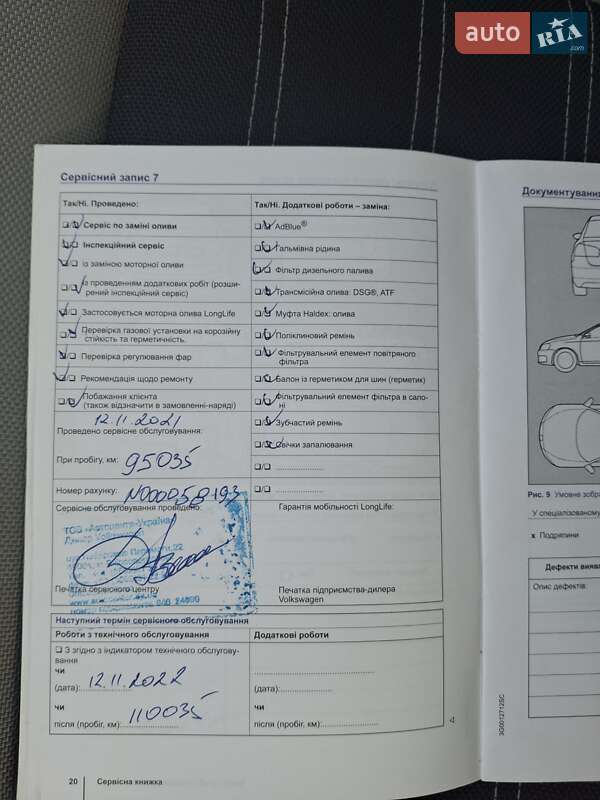 auto RIA .com
Сервісний запис 7
Так/Ні. Проведено:
Так/Ні. Додаткові роботи – заміна:
Сервіс по заміні оливи
AdBlue®
Інспекційний сервіс
Гальмівна рідина
із заміною моторної оливи
Фільтр дизельного палива
із проведенням додаткових робіт (розши-
рений інспекційний сервіс)
Трансмісійна олива: DSG®, ATF
Застосовується моторна олива LongLife
Муфта Haldex: олива
Перевірка газової установки на корозійну
стійкість та герметичність.
Поліклиновий ремінь
Перевірка регулювання фар
Фільтрувальний елемент повітряного
фільтра
Рекомендація щодо ремонту
Балон із герметиком для шин (герметик)
Побажання клієнта
(також відзначити в замовленні-наряді)
Фільтрувальний елемент фільтра в сало-
ні
12.11.2021
Проведено сервісне обслуговування:
Зубчастий ремінь
Свічки запалювання
При пробігу, км: 95035
Номер рахунку: N000058193
Сервісне обслуговування проведено:
Гарантія мобільності LongLife:
ТОВ «Автоцентр-Україна»
Дилер Volkswagen
Печатка сервісного центру
Печатка підприємства-дилера
Volkswagen
Наступний термін сервісного обслуговування
Роботи з технічного обслуговування
Додаткові роботи
З згідно з індикатором технічного обслугову-
вання
чи
(дата): 12.11.2022
(дата):
чи
чи
110035
після (пробіг, км):
після (пробіг, км):
20 Сервісна книжка
Документуванн
Рис. 9 Умовне зобра
У спеціалізованому
x Подряпини
Дефекти вияв
Опис дефектів:
3G0012712SC